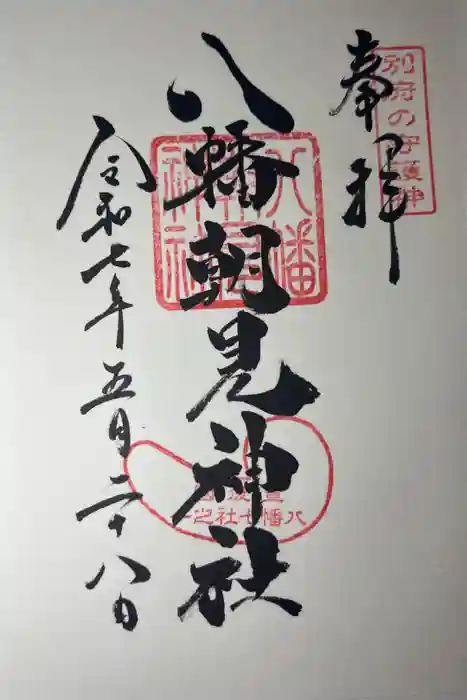 奉拝
別府の守護神
八幡朝見神社
八幡朝見神社
豊後国
八幡七社之一
令和七年五月二十八日